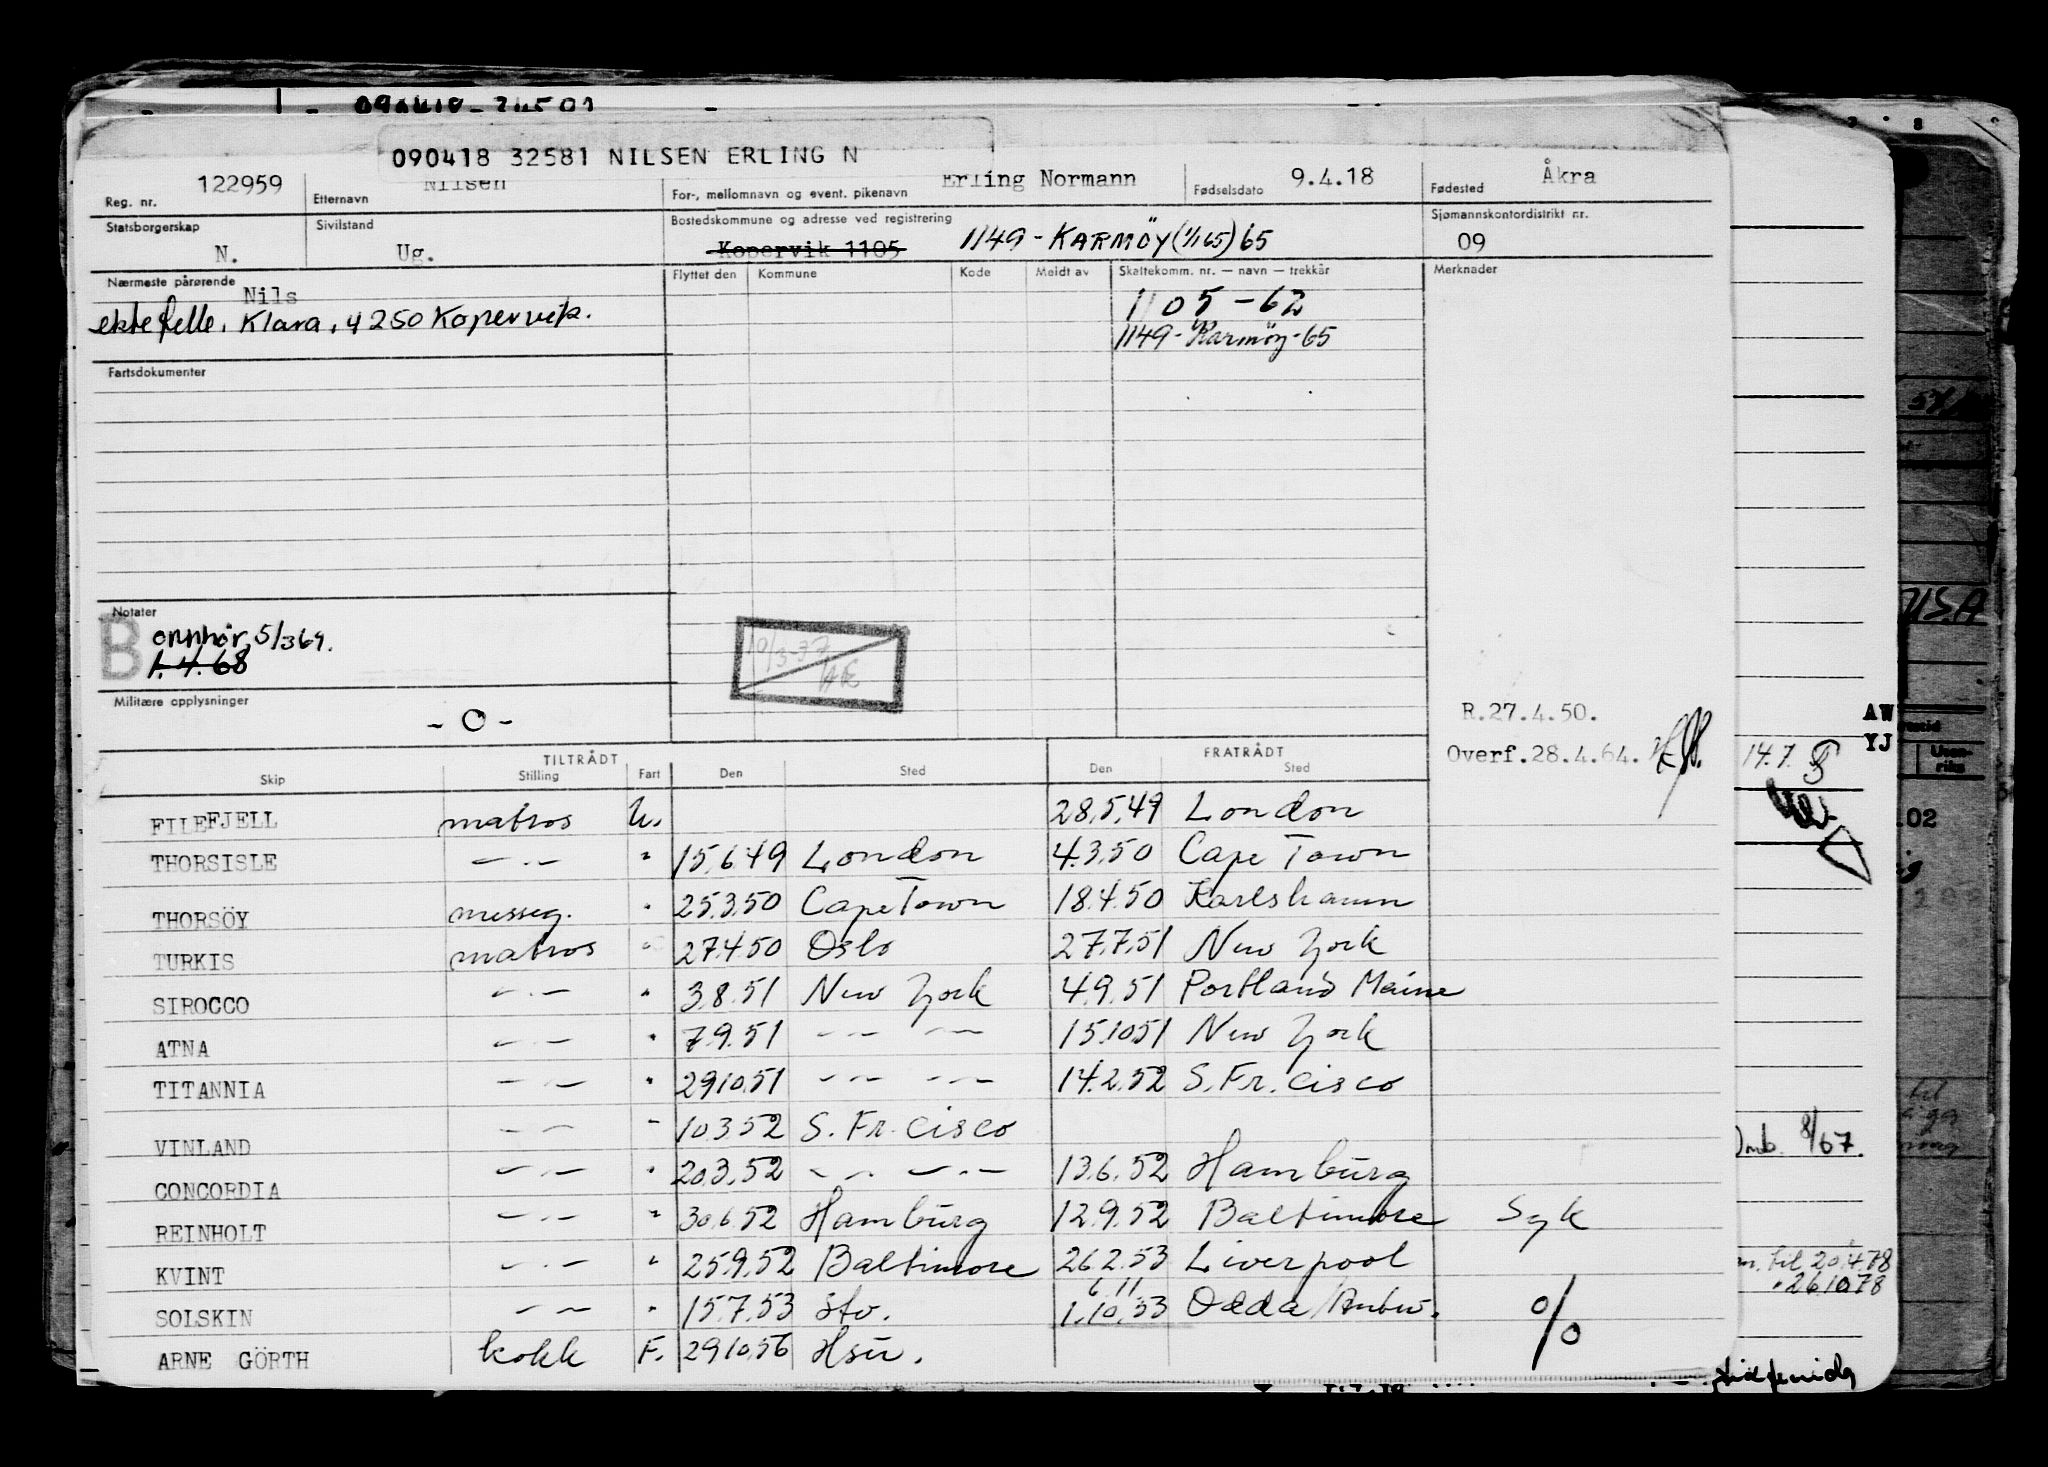 090418 32581 NILSEN ERLING N
Reg. nr. 122959 Etternavn Nilsen For-, mellomnavn og event. pikenavn Erling Normann Fødselsdato 9.4.18 Fødested Åkra
Statsborgerskap N. Sivilstand Ug. Bostedskommune og adresse ved registrering Kopervik 1105 1149 - KARMÖY (1/1 65) 65 Sjømannskontordistrikt nr. 09
Nærmeste pårørende Nils Flyttet den Kommune Kode Meldt av Skattekomm. nr. — navn — trekkår Merknader
ektefelle, Klara, 4250 Kopervik. 1105 - 62
1149 - Karmöy - 65
Fartsdokumenter
Notater
B onnhør, 5/3 69.
1.4.68
19/3-37
Militære opplysninger - O -
R.27.4.50.
Overf.28.4.64.
TILTRÅDT FRATRÅDT
Skip Stilling Fart Den Sted Den Sted
FILEFJELL matros U. 28.5.49 London
THORSISLE — . — " 15.6.49 London 4.3.50 Cape Town
THORSÖY messeg. " 25.3.50 Cape Town 18.4.50 Karlshamn
TURKIS matros " 27.4.50 Oslo 27.7.51 New York
SIROCCO — . — " 3.8.51 New York 4.9.51 Portland Maine
ATNA — . — " 7.9.51 — — — — 15.10.51 New York
TITANNIA — . — " 29.10.51 — . — — . — 14.2.52 S. Fr. cisco
VINLAND — . — " 10.3.52 S. Fr. cisco
CONCORDIA — . — " 20.3.52 — . — . — 13.6.52 Hamburg
REINHOLT — . — " 30.6.52 Hamburg 12.9.52 Baltimore Syk
KVINT — . — " 25.9.52 Baltimore 26.2.53 Liverpool
SOLSKIN — . — " 15.7.53 Stv. 6.11. 1.10.53 Odda / Antw. %
ARNE GÖRTH kokk F. 29.10.56 Hsu.
AW
YJ
14.7.
.02
USA
8/67.
til 20.4.78
" 26.10.78